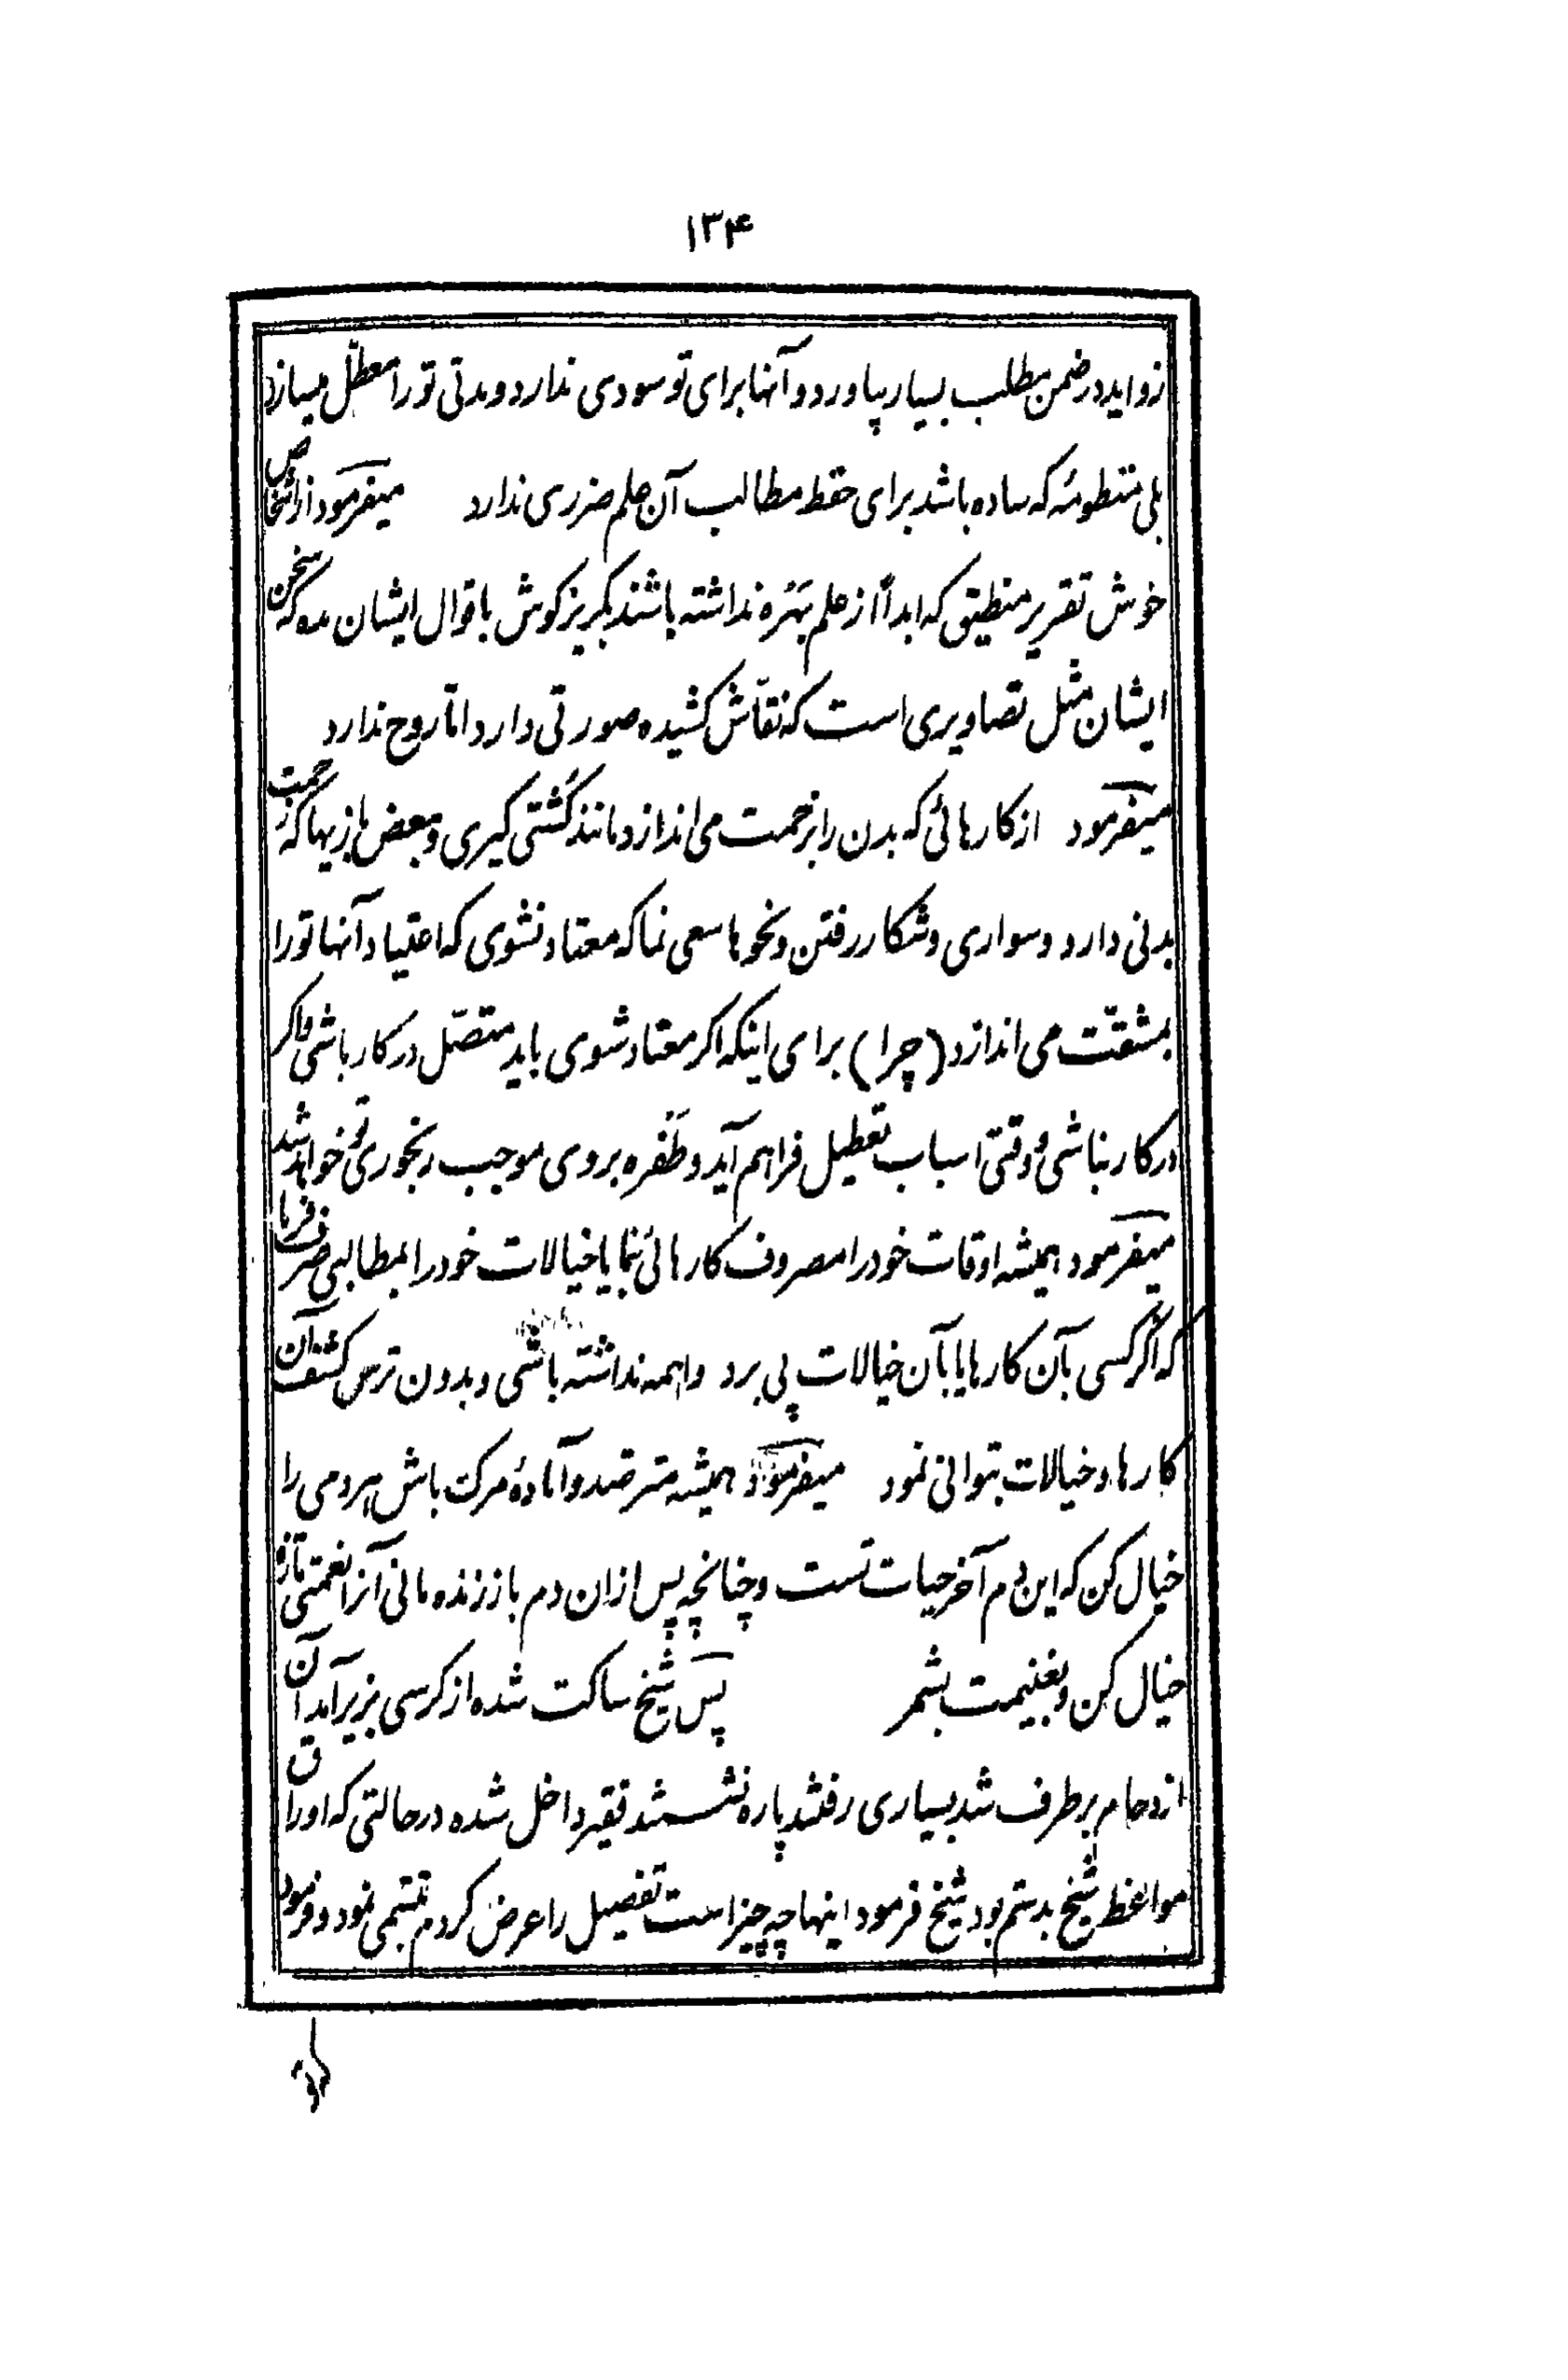 ۱۳۴
زواید در ضمن مطلب بسیار بیاورد و آنها برای تو سودی ندارد و مدتی تو را معطّل میسازد
بلی منظومهٔ که ساده باشد برای حفظ مطالب آن علم ضرری ندارد میفرمود از اشخاص
خوش تقریر منطیق که ابداً از علم بهرهٔ نداشته باشند بگریز گوش باقوال ایشان مده که سخن
ایشان مثل تصاویری است که نقّاش کشیده صورتی دارد امّا روح ندارد
میفرمود از کارهائی که بدن را بزحمت می اندازد مانند کُشتی گیری و بعض بازیها که زحمت
بدنی دارد و سواری و شکار رفتن و نحوها سعی نما که معتاد نشوی که اعتیاد آنها تو را
بمشقّت می اندازد (چرا) برای اینکه اگر معتاد شوی باید متّصل در کار باشی و اگر
در کار نباشی و وقتی اسباب تعطیل فراهم آید و طَفره بروی موجب رنجوری تو خواهد شد
میفرمود همیشه اوقات خود را مصروف کارهائی نما یا خیالات خود را بمطالبی صرف فرما
که اگر کسی بآن کارها یا بآن خیالات پی برد واهمه نداشته باشی و بدون ترس کشف آن
کارها و خیالات بتوانی نمود میفرمود همیشه مترصّد و آمادهٔ مرگ باش هر دمی را
خیال کن که این دم آخر حیات تست و چنانچه پس ازان دم باز زنده مانی آنرا نعمتی تازه
خیال کن و بغنیمت بشمر پس شیخ ساکت شده از کرسی بزیر آمد آن
ازدحام برطرف شد بسیاری رفتند پاره نشستند فقیر داخل شده در حالتی که اوراق
مواعظ شیخ بدستم بود شیخ فرمود اینها چه چیز است تفصیل را عرض کردم تبسّمی نمود و فرمود